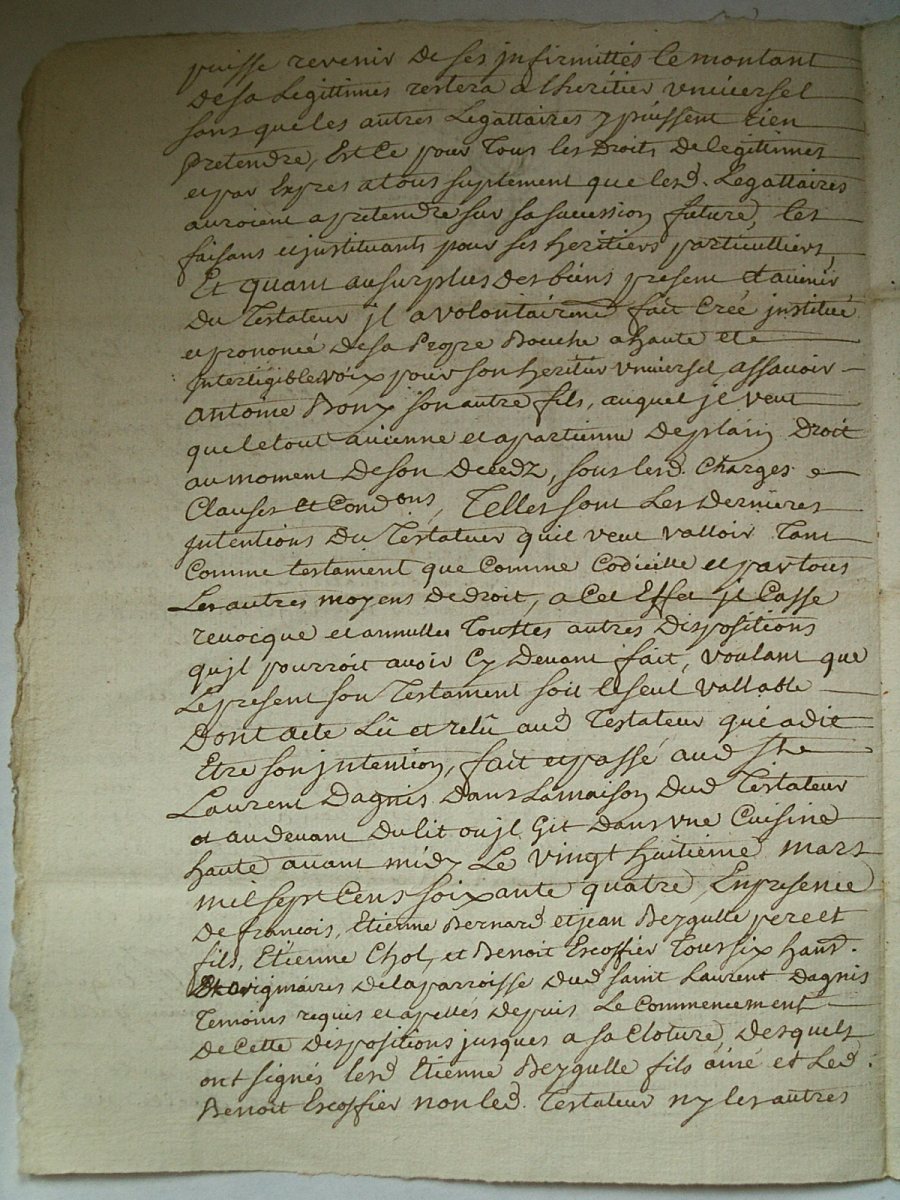 puisse revenir de ses jnfirmittés le montant
de sa Legittimes restera a lheritier vniversel
sans que les autres Legattaires y puissent rien
pretendre, Est Ce pour Tous les Droits de legitimes
et par Expres a tous suplement que lesd. Legattaires
auroient a pretendre sur sa succession future, les
faisans et jnstituants pour ses heritiers particulliers,
Et quant au surplus des biens present et avenir
Du Testateur jl a volontairem.t fait Créé jnstitué
et prononcé de sa Propre Bouche a haute et
jntelligible voix pour son heritier vniversel, assavoir
Antoine Bony son autre fils, auquel je veut
que le tout avienne et apartienne de plain Droit
au moment de son Decedz, sous lesd. Charges
Clauses et Cond.ons, Telles sont Les Dernieres
jntentions Du Testateur quil veut valloir Tant
Comme testament que Comme Codicille et par tous
Les autres moyens de droit, a Cet Effet jl Casse
revocque et annulles Touttes autres Dispositions
qu'jl pourroit avoir Cy Devant fait, voulant que
Le present son Testament soit le seul vallable
Dont acte Lû et relû aud Testateur qué a dit
Etre son jntention, fait et passé aud St
Laurent Dagnis Dans La maison Dud Testateur
et au devant du lit ou jl Git Dans vne Cuisine
haute avant midy Le vingt huitieme mars
mil sept Cens soixante quatre, En presence
De francois, Etienne Bernard et jean Beygulle pere et
fils, Etienne Chol, et Benoit Escoffier Tous six hand.
originaires de la parroisse dud saint Laurent Dagnis
Temoins requis et apellés depuis Le Commencement
De Cette Dispositions jusques a sa Cloture, Desquels
ont signés lesd Etienne Beygulle fils ainé et Led.
Benoit Escoffier non led. Testateur ny les autres